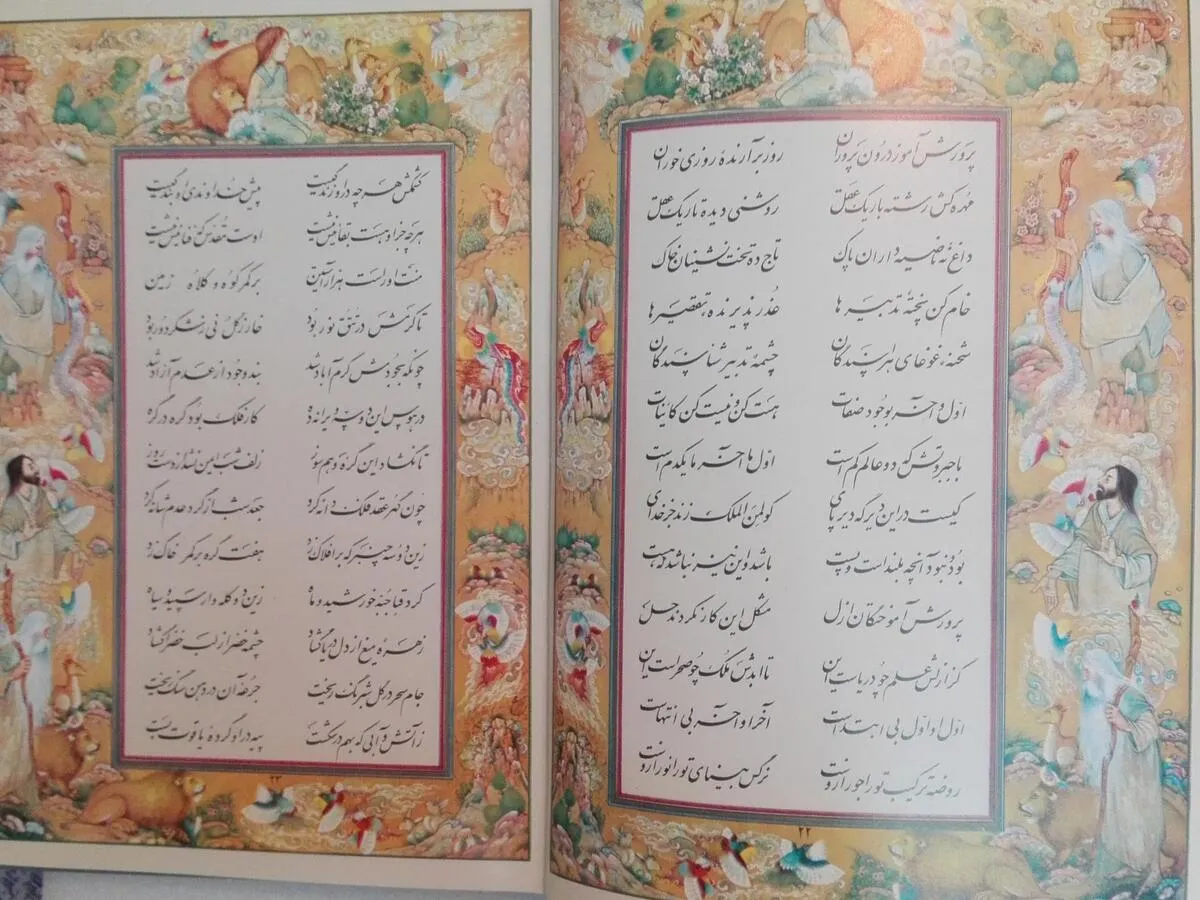 پرورش آموز درون پروران روز بر آرندهٔ روزی خوران
مهره کش رشته باریک عقل روشنی دیدهٔ تاریک عقل
داغ نه ناصیه داران پاک تاج ده تخت نشینان خاک
خام کن پختهٔ تدبیر ها عذر پذیرنده تقصیر ها
شحنه غوغای هراسندگان چشمهٔ تدبیر شناسندگان
اول و آخر بوجود و صفات هست کن و نیست کن کاینات
با جبروتش که دو عالم کم است اول ما آخر ما یکدم است
کیست در این دیر گه دیر پای کو لمن الملک زند جز خدای
بود و نبود آنچه بلند است و پست باشد و این نیز نباشد که هست
پرورش آموختگان ازل مشکل این کار نکردند حل
کز ازلش علم چو دریاست این تا ابدش ملک چو صحراست این
اول او اول بی ابتداست آخر او آخر بی انتهاست
روضه ترکیب تو را حور از اوست نرگس بینای تو را نور از اوست
۲۲
کشمکش هر چه در او زندگیست پیش خداوندی او بندگیست
هر چه جز او هست بقائیش نیست اوست مقدس که فنائیش نیست
منت او راست هزار آستین بر کمر کوه و کلاه زمین
تا کرمش در تتق نور بود خار ز گل نی ز شکر دور بود
چونکه بجودش کرم آباد شد بند وجود از عدم آزاد شد
در هوس این دو سه ویرانه ده کار فلک بود گره در گره
تا نگشاد این گره وهم سوز زلف شب ایمن نشد از دست روز
چون گهر عقد فلک دانه کرد جعد شب از گرد عدم شانه کرد
زین دو سه چنبر که بر افلاک زد هفت گره بر کمر خاک زد
کرد قبا جبه خورشید و ماه زین دو کله وار سپید و سیاه
زهره میغ از دل دریا گشاد چشمه خضر از لب خضرا گشاد
جام سحر در گل شبرنگ ریخت جرعه آن در دهن سنگ ریخت
ز آتش و آبی که بهم در شکست پیه در او گردهٔ یاقوت بست
۲۳